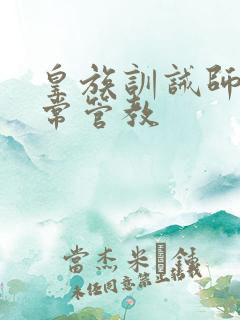 皇族訓誡師
常管教
當杰米
未任同意禁止轉載